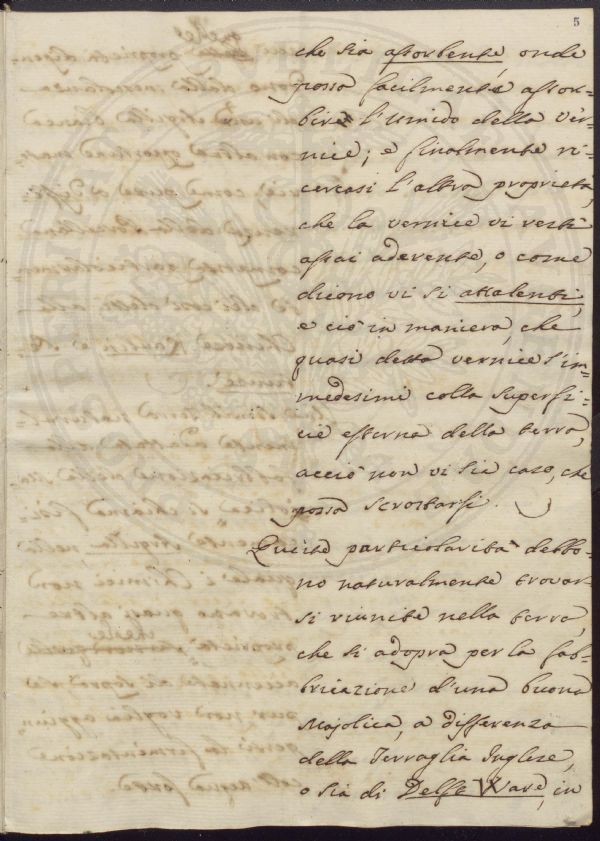 5
che sia assorbente, onde
possa facilmente assor=
bire l'umido della ver=
nice; e finalmente ri=
cercasi l'altra proprietà,
che la vernice vi resti
assai aderente, o come
dicono vi si attalenti,
e ciò in maniera, che
quasi detta vernice s'im=
medesimi colla superfi=
cie esterna della terra,
acciò non vi sia caso, che
possa scrostarsi.
Queste particolarità debbo=
no naturalmente trovar=
si riunite nella terra,
che si adopra per la fab=
bricazione d'una buona
Majolica, a differenza
della Terraglia Inglese,
o sia di Delft Ware, in